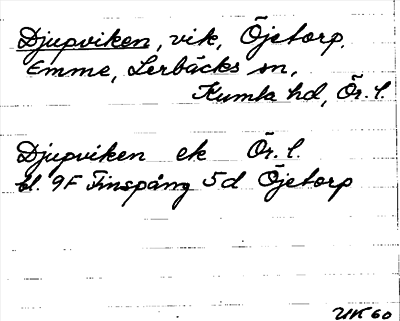 Djupviken, vik, Öjetorp,
Emme, Lerbäcks sn,
Kumla hd, Ör. l.
Djupviken ek Ör. l.
bl. 9F Finspång 5d Öjetorp
UK 60